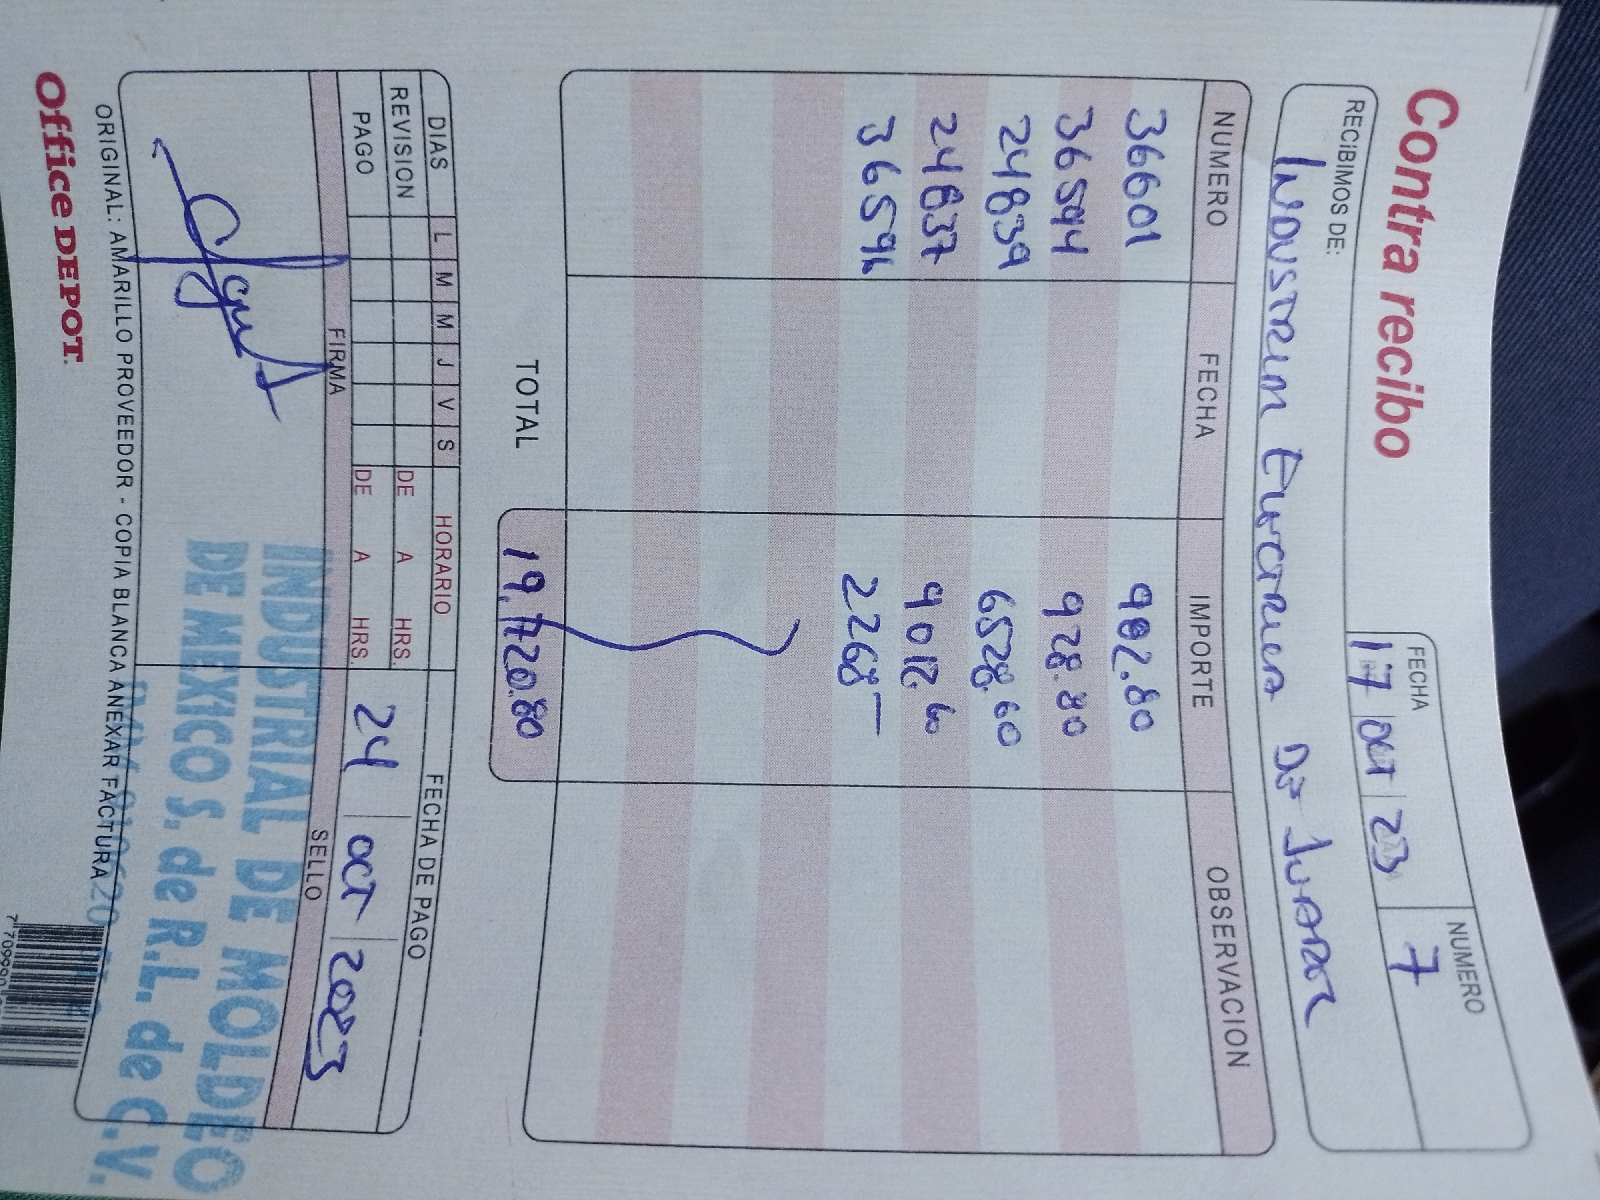 Contra recibo
FECHA NUMERO
17 OCT 23 7
RECIBIMOS DE:
INDUSTRIA ELECTRICA DE JUAREZ
NUMERO FECHA IMPORTE OBSERVACION
36601 982.80
36594 928.80
24839 6528.60
24837 9012.60
36596 2268-
TOTAL 19,720.80
DIAS L M M J V S HORARIO FECHA DE PAGO
REVISION DE A HRS.
PAGO DE A HRS. 24 OCT 2023
FIRMA SELLO
INDUSTRIAL DE MOLDEO
DE MEXICO S. de R.L. de C.V.
ORIGINAL: AMARILLO PROVEEDOR - COPIA BLANCA ANEXAR FACTURA
Office DEPOT.